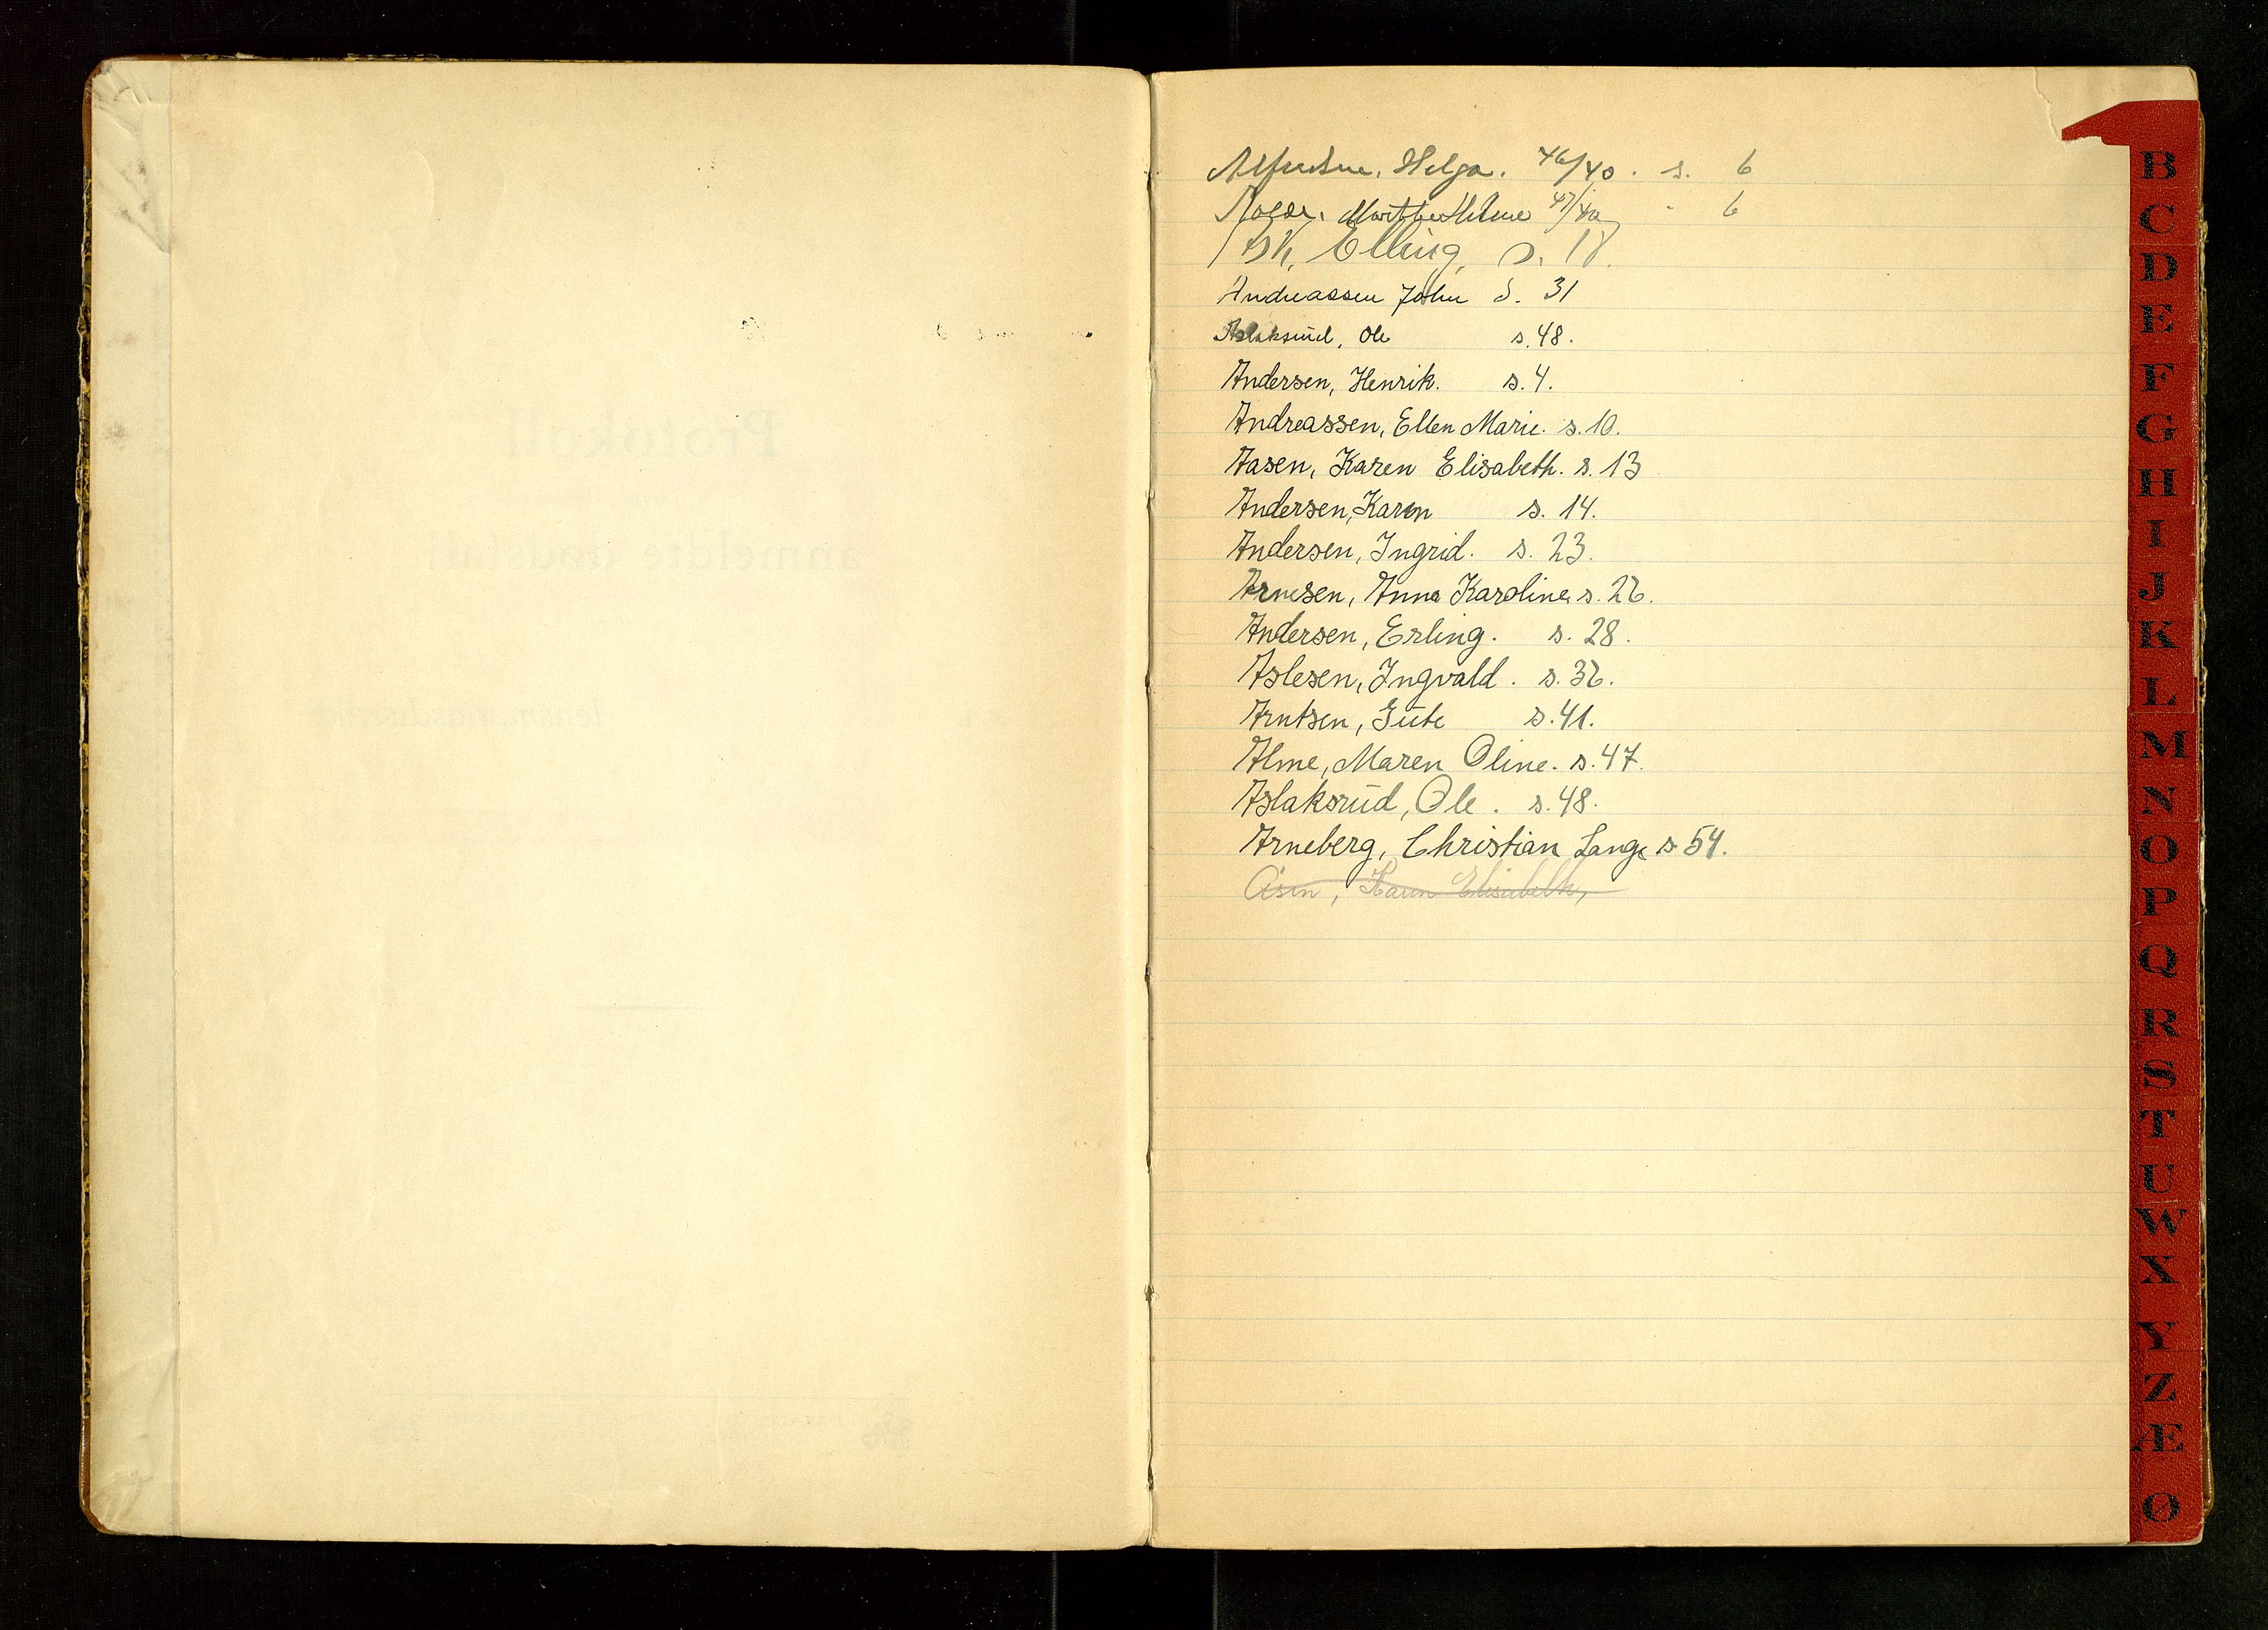 Helga. 46/40. s. 6
Marthe Helene 47/40 - 6
Ask, Elling, s. 18.
Andreassen John S. 31
Aslaksrud, Ole s. 48.
Andersen, Henrik. s. 4.
Andreassen, Ellen Marie. s. 10.
Aasen, Karen Elisabeth. s. 13
Andersen, Karen s. 14.
Andersen, Ingrid. s. 23.
Arnesen, Anna Karoline, s. 26.
Andersen, Erling. s. 28.
Aslesen, Ingvald. s. 36.
Arntsen, Gute s. 41.
Alme, Maren Oline. s. 47.
Aslaksrud, Ole. s. 48.
Arneberg, Christian Lange s 54.
Åsen, Karen Elisabeth,
B
C
D
E
F
G
H
I
J
K
L
M
N
O
P
Q
R
S
T
U
W
X
Y
Z
Æ
Ø